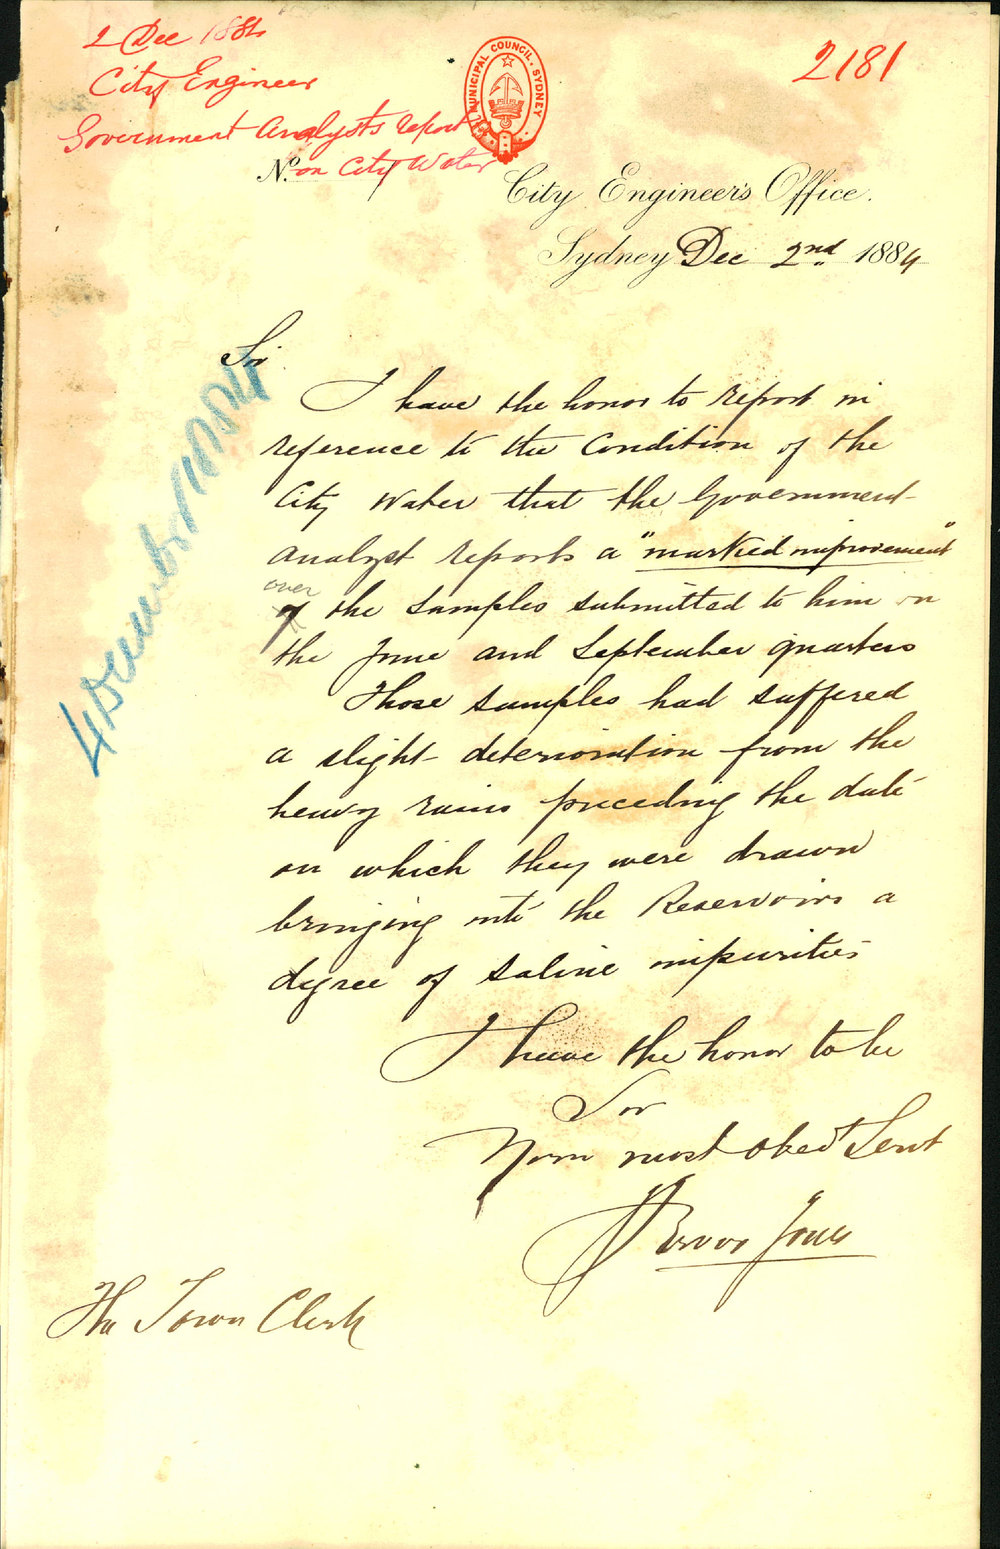 2 Dec 1884
City Engineer
Government Analysts report
on City Water
MUNICIPAL COUNCIL, SYDNEY
2181
No.
City Engineer's Office.
Sydney Dec 2nd 1884
4 December 1884
Sir
I have the honor to report in
reference to the Condition of the
City Water that the Government
Analyst reports a "marked improvement"
over
of the samples submitted to him in
the June and September quarters
Those samples had suffered
a slight deterioration from the
heavy rains preceding the date
on which they were drawn
bringing into the Reservoirs a
degree of saline impurities
I have the honor to be
Sir
Your most obedt Servt
Trevor Jones
The Town Clerk